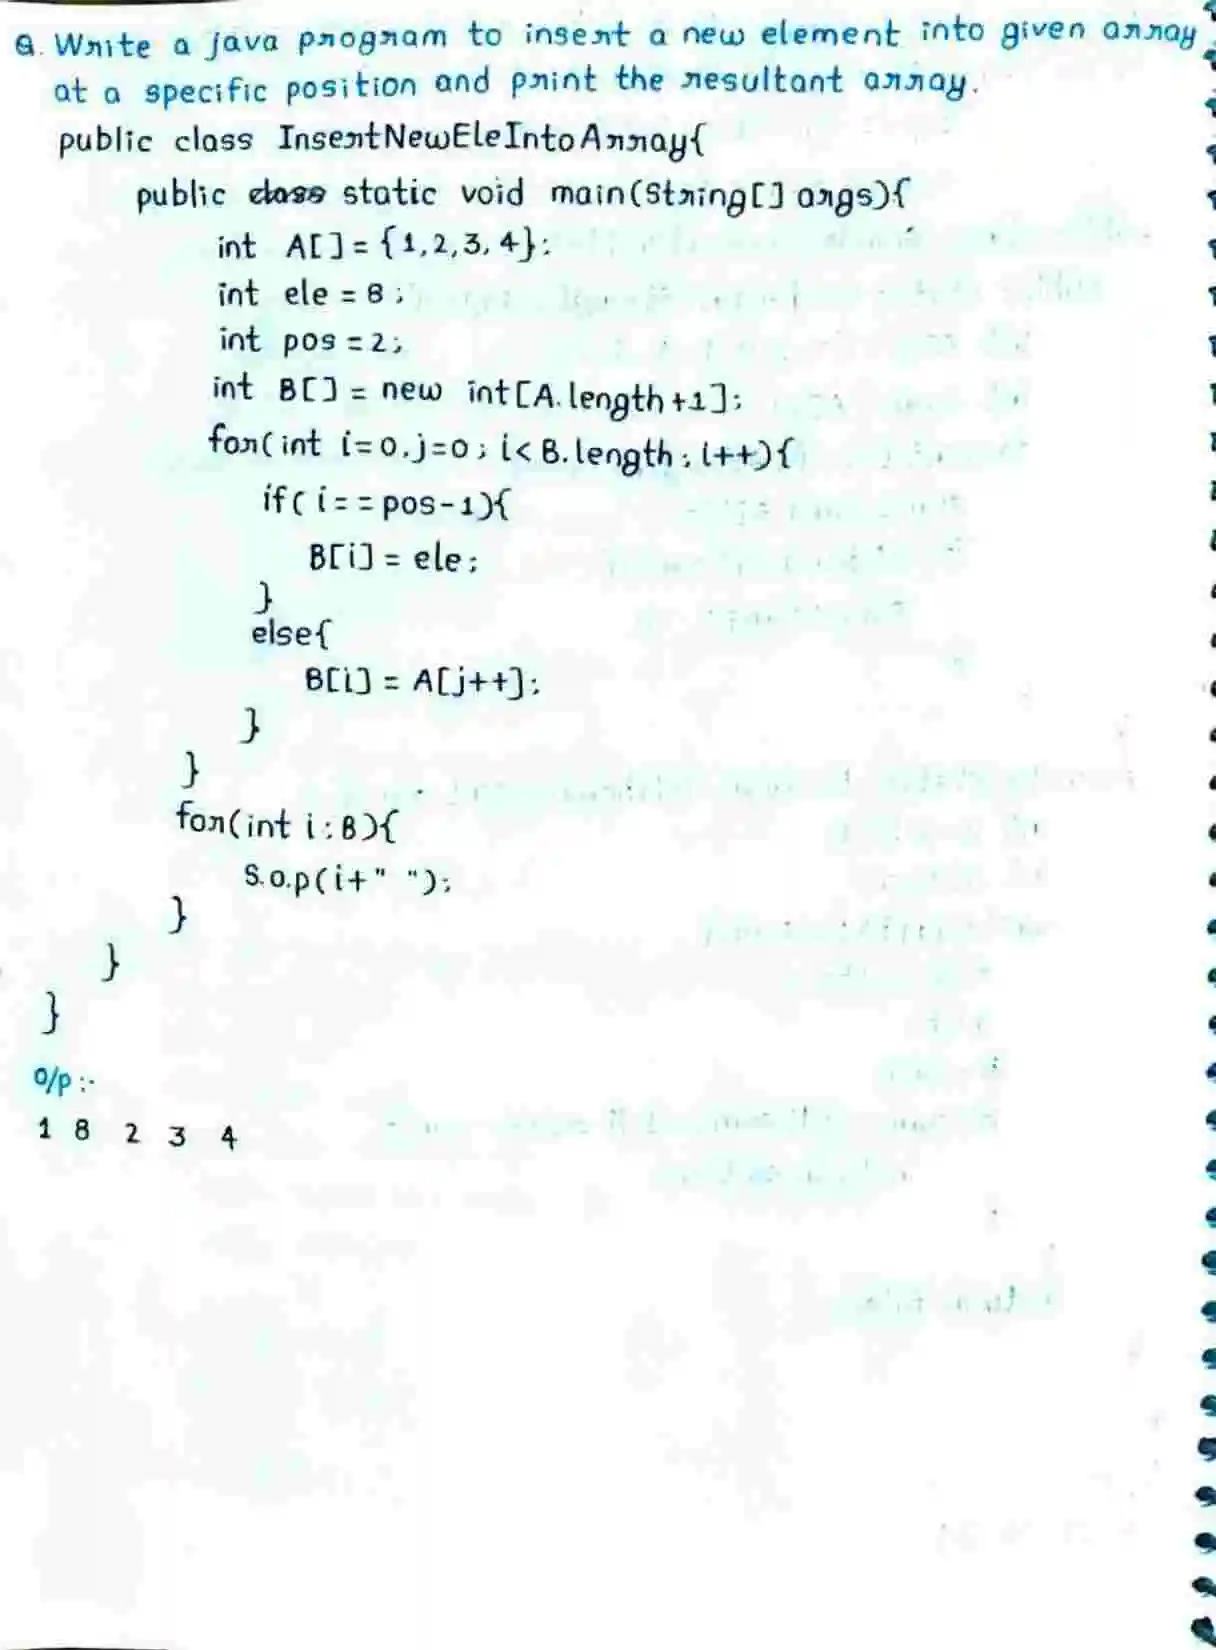 Q. Write a java program to insert a new element into given array
at a specific position and print the resultant array.
public class InsertNewEleIntoArray{
public class static void main(String[] args){
int A[] = {1,2,3,4};
int ele = 8;
int pos = 2;
int B[] = new int[A.length+1];
for(int i=0,j=0; i<B.length; i++){
if(i==pos-1){
B[i] = ele;
}
else{
B[i] = A[j++];
}
}
for(int i:B){
S.o.p(i+" ");
}
}
}
O/p :-
1 8 2 3 4